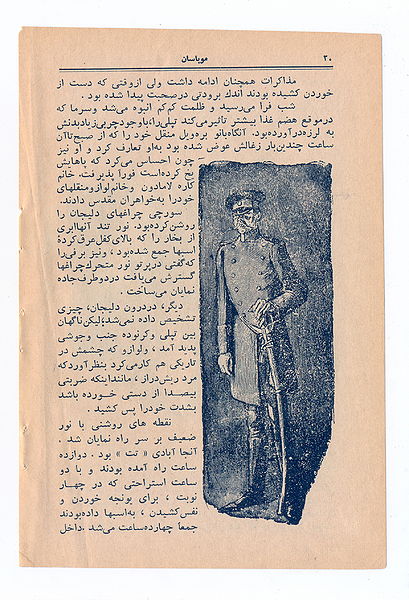 ۲۰
موپاسان
مذاکرات همچنان ادامه داشت ولی ازوقتی که دست از
خوردن کشیده بودند اندك برودتی درصحبت پیدا شده بود .
شب فرا می‌رسید و ظلمت کم‌کم انبوه می‌شد وسرما که
درموقع هضم غذا بیشتر تأثیرمی‌کند تپلی‌را، باوجودچربی‌زیادبدنش
به لرزه‌درآورده‌بود. آنگاه‌بانو بره‌ویل منقل خود را که از صبح‌تاآن
ساعت چندین‌بار زغالش عوض شده بود به‌او تعارف کرد و او نیز
چون احساس می‌کرد که پاهایش
یخ کرده‌است فورا پذیرفت. خانم
کاره لامادون وخانم‌لوازومنقلهای
خودرا به‌خواهران مقدس دادند.
سورچی چراغهای دلیجان را
روشن‌کرده‌بود. نور تند آنهاابری
از بخار را که بالای‌کفل‌عرق‌کردهٔ
اسبها جمع شده‌بود ، ونیز برفی‌را
که‌گفتی درپرتو نور متحرك‌چراغها
گسترش می‌یافت دردوطرف‌جاده
نمایان می‌ساخت .
دیگر، دردرون دلیجان، چیزی
تشخیص داده نمی‌شد؛لیکن‌ناگهان
بین تپلی وکرنوده جنب وجوشی
پدید آمد ، ولوازو که چشمش در
تاریکی هم کارمی‌کرد بنظرآوردکه
مرد ریش‌دراز ، مانند‌اینکه ضربتی
بیصدا از دستی خورده باشد
بشدت خودرا پس کشید .
نقطه های روشنی با نور
ضعیف بر سر راه نمایان شد .
آنجا آبادی « تت » بود . دوازده
ساعت راه آمده بودند و با دو
ساعت استراحتی که در چهار
نوبت ، برای یونجه خوردن و
نفس‌کشیدن ، به‌اسبها داده‌بودند
جمعاً چهارده‌ساعت می‌شد .داخل